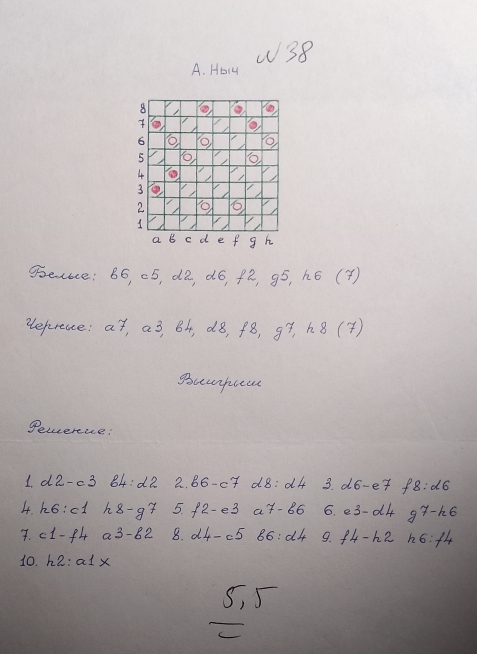 N 38
А. Ныч
8
7
6
5
4
3
2
1
a b c d e f g h
Белые: b6, c5, d2, d6, f2, g5, h6 (7)
Черные: a7, a3, b4, d8, f8, g7, h8 (7)
Выигрыш
Решение:
1. d2-c3 b4:d2 2. b6-c7 d8:d4 3. d6-e7 f8:d6
4. h6:c1 h8-g7 5. f2-e3 a7-b6 6. e3-d4 g7-h6
7. c1-f4 a3-b2 8. d4-c5 b6:d4 9. f4-h2 h6:f4
10. h2:a1x
5,5